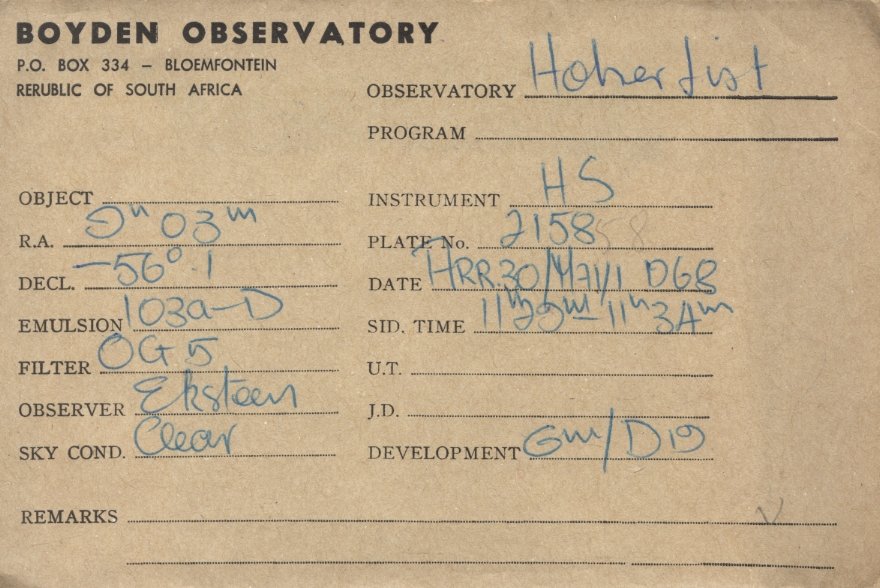 BOYDEN OBSERVATORY
P.O. BOX 334 – BLOEMFONTEIN
RERUBLIC OF SOUTH AFRICA
OBSERVATORY Hoher List
PROGRAM
OBJECT
R.A. 9h 03m
DECL. –56°.1
EMULSION 103a–D
FILTER OG 5
OBSERVER Eksteen
SKY COND. Clear
INSTRUMENT HS
PLATE No. 2158 58
DATE APR.30/MAY1 1968
SID. TIME 11h 29m – 11h 34m
U.T.
J.D.
DEVELOPMENT 6m/D19
REMARKS